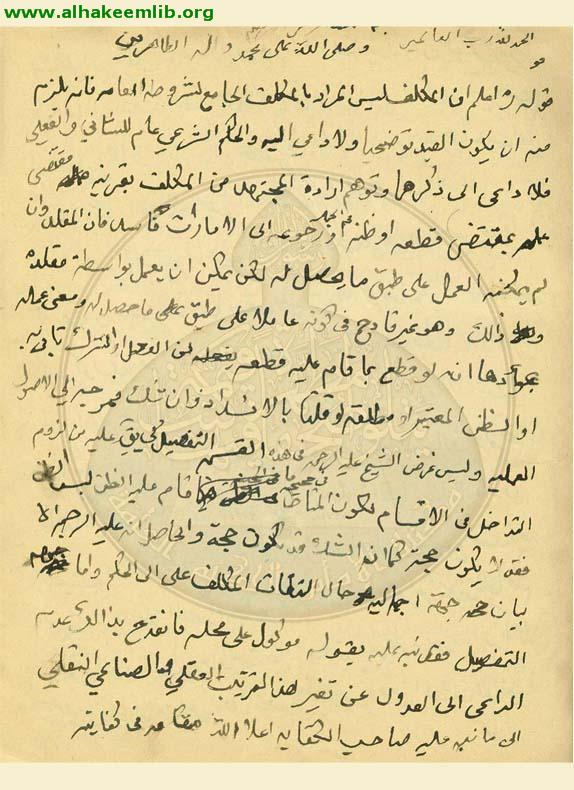 www.alhakeemlib.org
الحمد لله رب العالمين وصلى الله على محمد واله الطاهرين
قوله ره اعلم ان المكلف ليس المراد بالمكلف الجامع لشروطه العامه فانه يلزم
منه ان يكون القيد توضيحيا ولا داعي اليه والحكم الشرعي عام للشاني والفعلي
فلا داعي الى ذكرهما وتوهم ارادة المجتهد من المكلف بقرينه مقتضى
بمقتضى قطعه او ظنه ورجوعه الى الامارات فاسد فان المقلد وان
لم يمكنه العمل على طبق ما يحصل له لكن يمكن ان يعمل بواسطة مقلده
ذلك وهو غير قادح في كونه عاملا على طبق ما حصل له ومعنى عمله
انه لو قطع بما قام عليه قطعه من الفعل او الترك ياتي به
او الظن المعتبر او مطلقه لو قلنا بالانسداد وان شك فمرجعه الى الاصول
العمليه وليس غرض الشيخ عليه الرحمه في هذه القسمه التفصيل كي يقع عليه من لزوم
التداخل في الاقسام لكون المناط في قام عليه الظن
فقد لا يكون حجة كما ان الشك قد يكون حجة والحاصل انه عليه الرحمه الا
بيان جهة اجماليه حال التفات المكلف على الى الحكم واما
التفصيل فقد نبه عليه بقوله موكول على محله فانقدح بذا لك عدم
الداعي الى العدول عن تغير هذا الترتيب العقلي والصناعي النقلي
الى ما نبه عليه صاحب الكفايه اعلا الله مقامه في كفايته